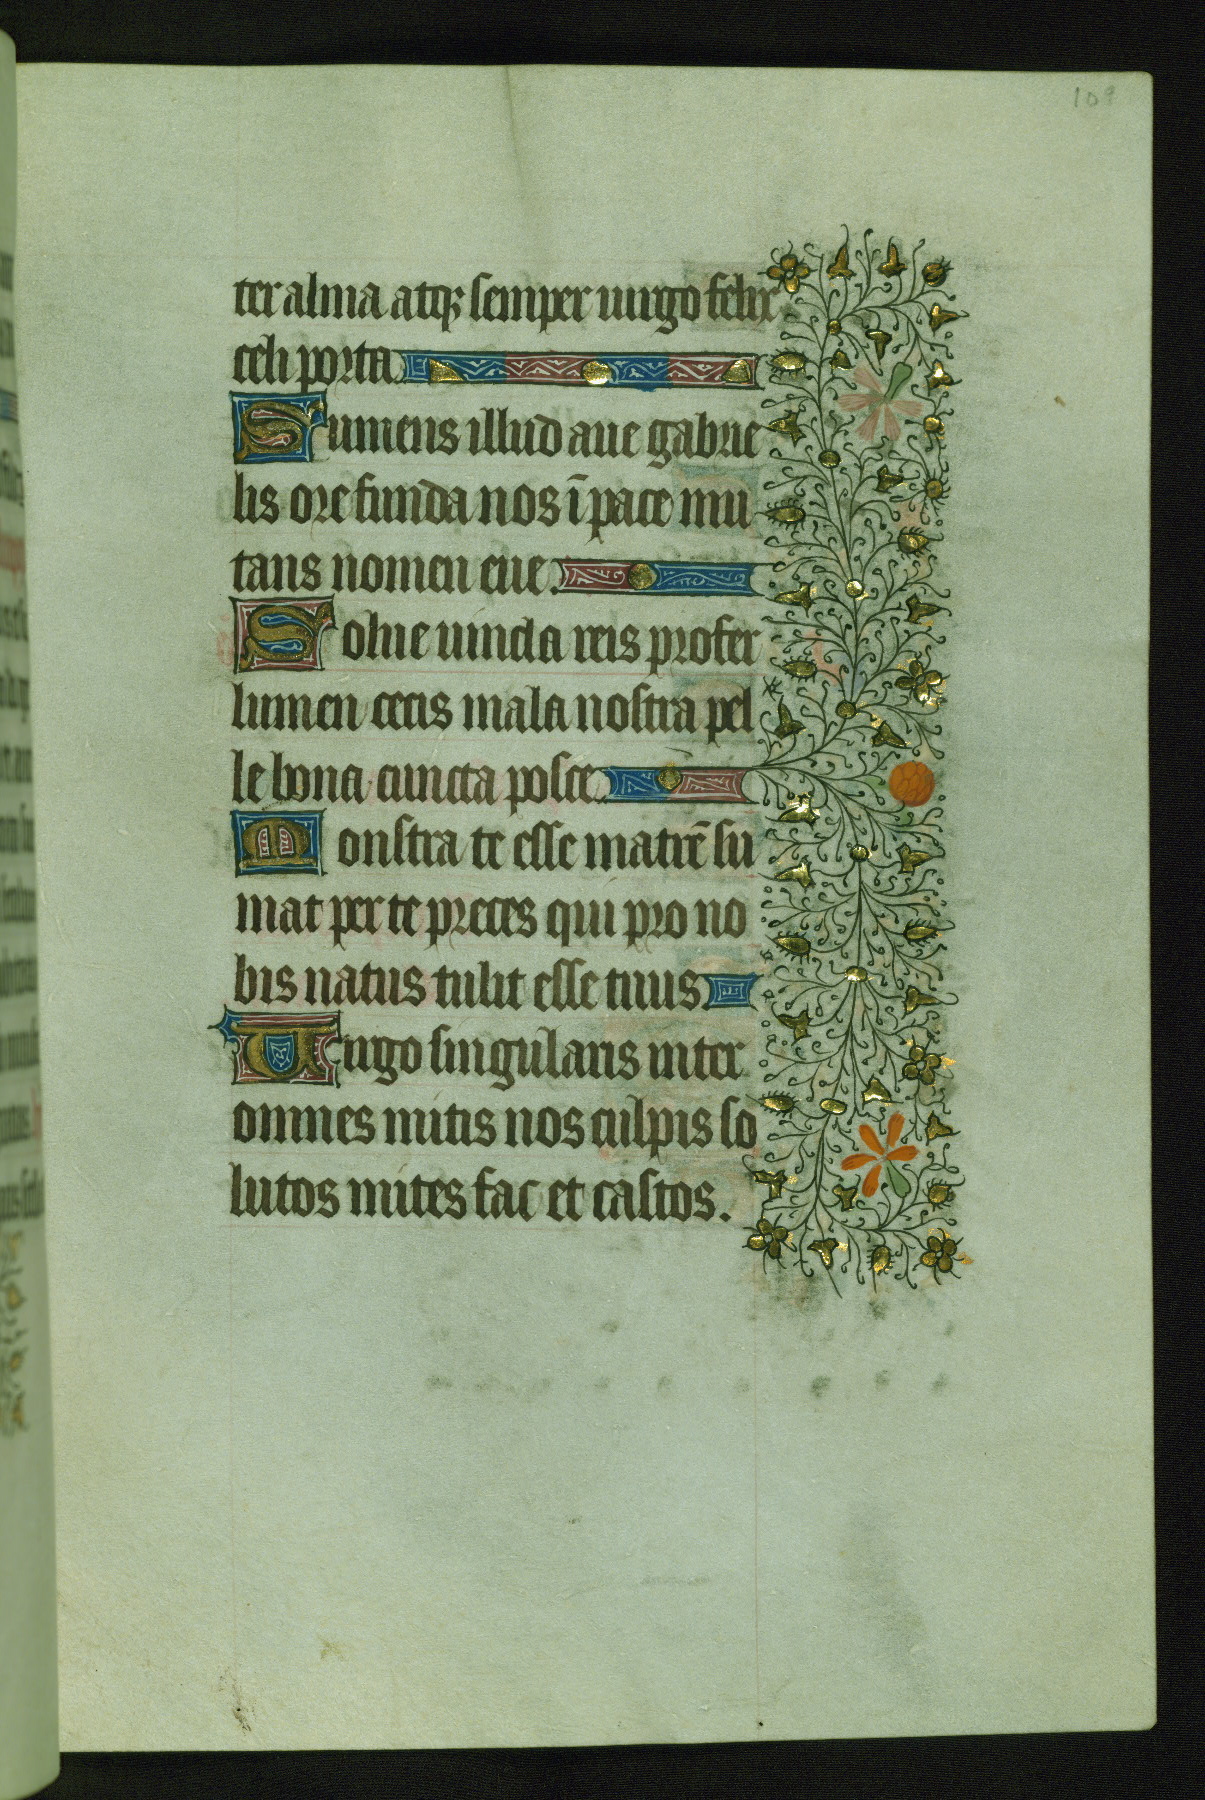 109
ter alma atq; semper uirgo felix
celi porta.
Sumens illud aue gabrie
lis ore funda nos ī pace mu
tans nomen eue.
Solue uincla reis profer
lumen cecis mala nostra pel
le bona cuncta posce.
Monstra te esse matrē su
mat per te preces qui pro no
bis natus tulit esse tuus.
Uirgo singularis inter
omnes mitis nos culpis so
lutos mites fac et castos.